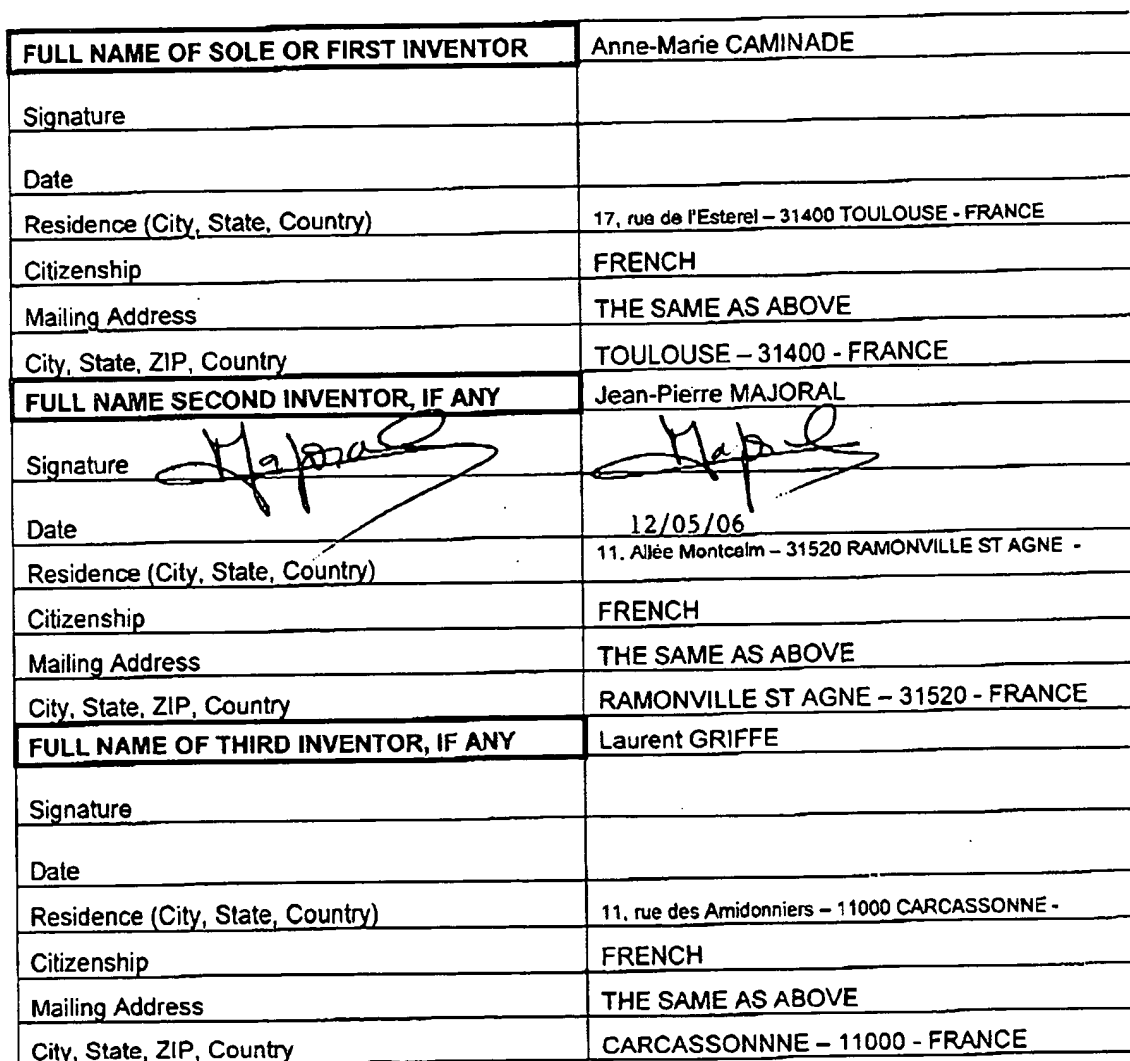 FULL NAME OF SOLE OR FIRST INVENTOR Anne-Marie CAMINADE
Signature
Date
Residence (City, State, Country) 17, rue de l'Esterel – 31400 TOULOUSE - FRANCE
Citizenship FRENCH
Mailing Address THE SAME AS ABOVE
City, State, ZIP, Country TOULOUSE – 31400 - FRANCE
FULL NAME SECOND INVENTOR, IF ANY Jean-Pierre MAJORAL
Signature Majoral Majoral
Date 12/05/06
Residence (City, State, Country) 11, Allée Montcalm – 31520 RAMONVILLE ST AGNE -
Citizenship FRENCH
Mailing Address THE SAME AS ABOVE
City, State, ZIP, Country RAMONVILLE ST AGNE – 31520 - FRANCE
FULL NAME OF THIRD INVENTOR, IF ANY Laurent GRIFFE
Signature
Date
Residence (City, State, Country) 11, rue des Amidonniers – 11000 CARCASSONNE -
Citizenship FRENCH
Mailing Address THE SAME AS ABOVE
City, State, ZIP, Country CARCASSONNNE – 11000 - FRANCE